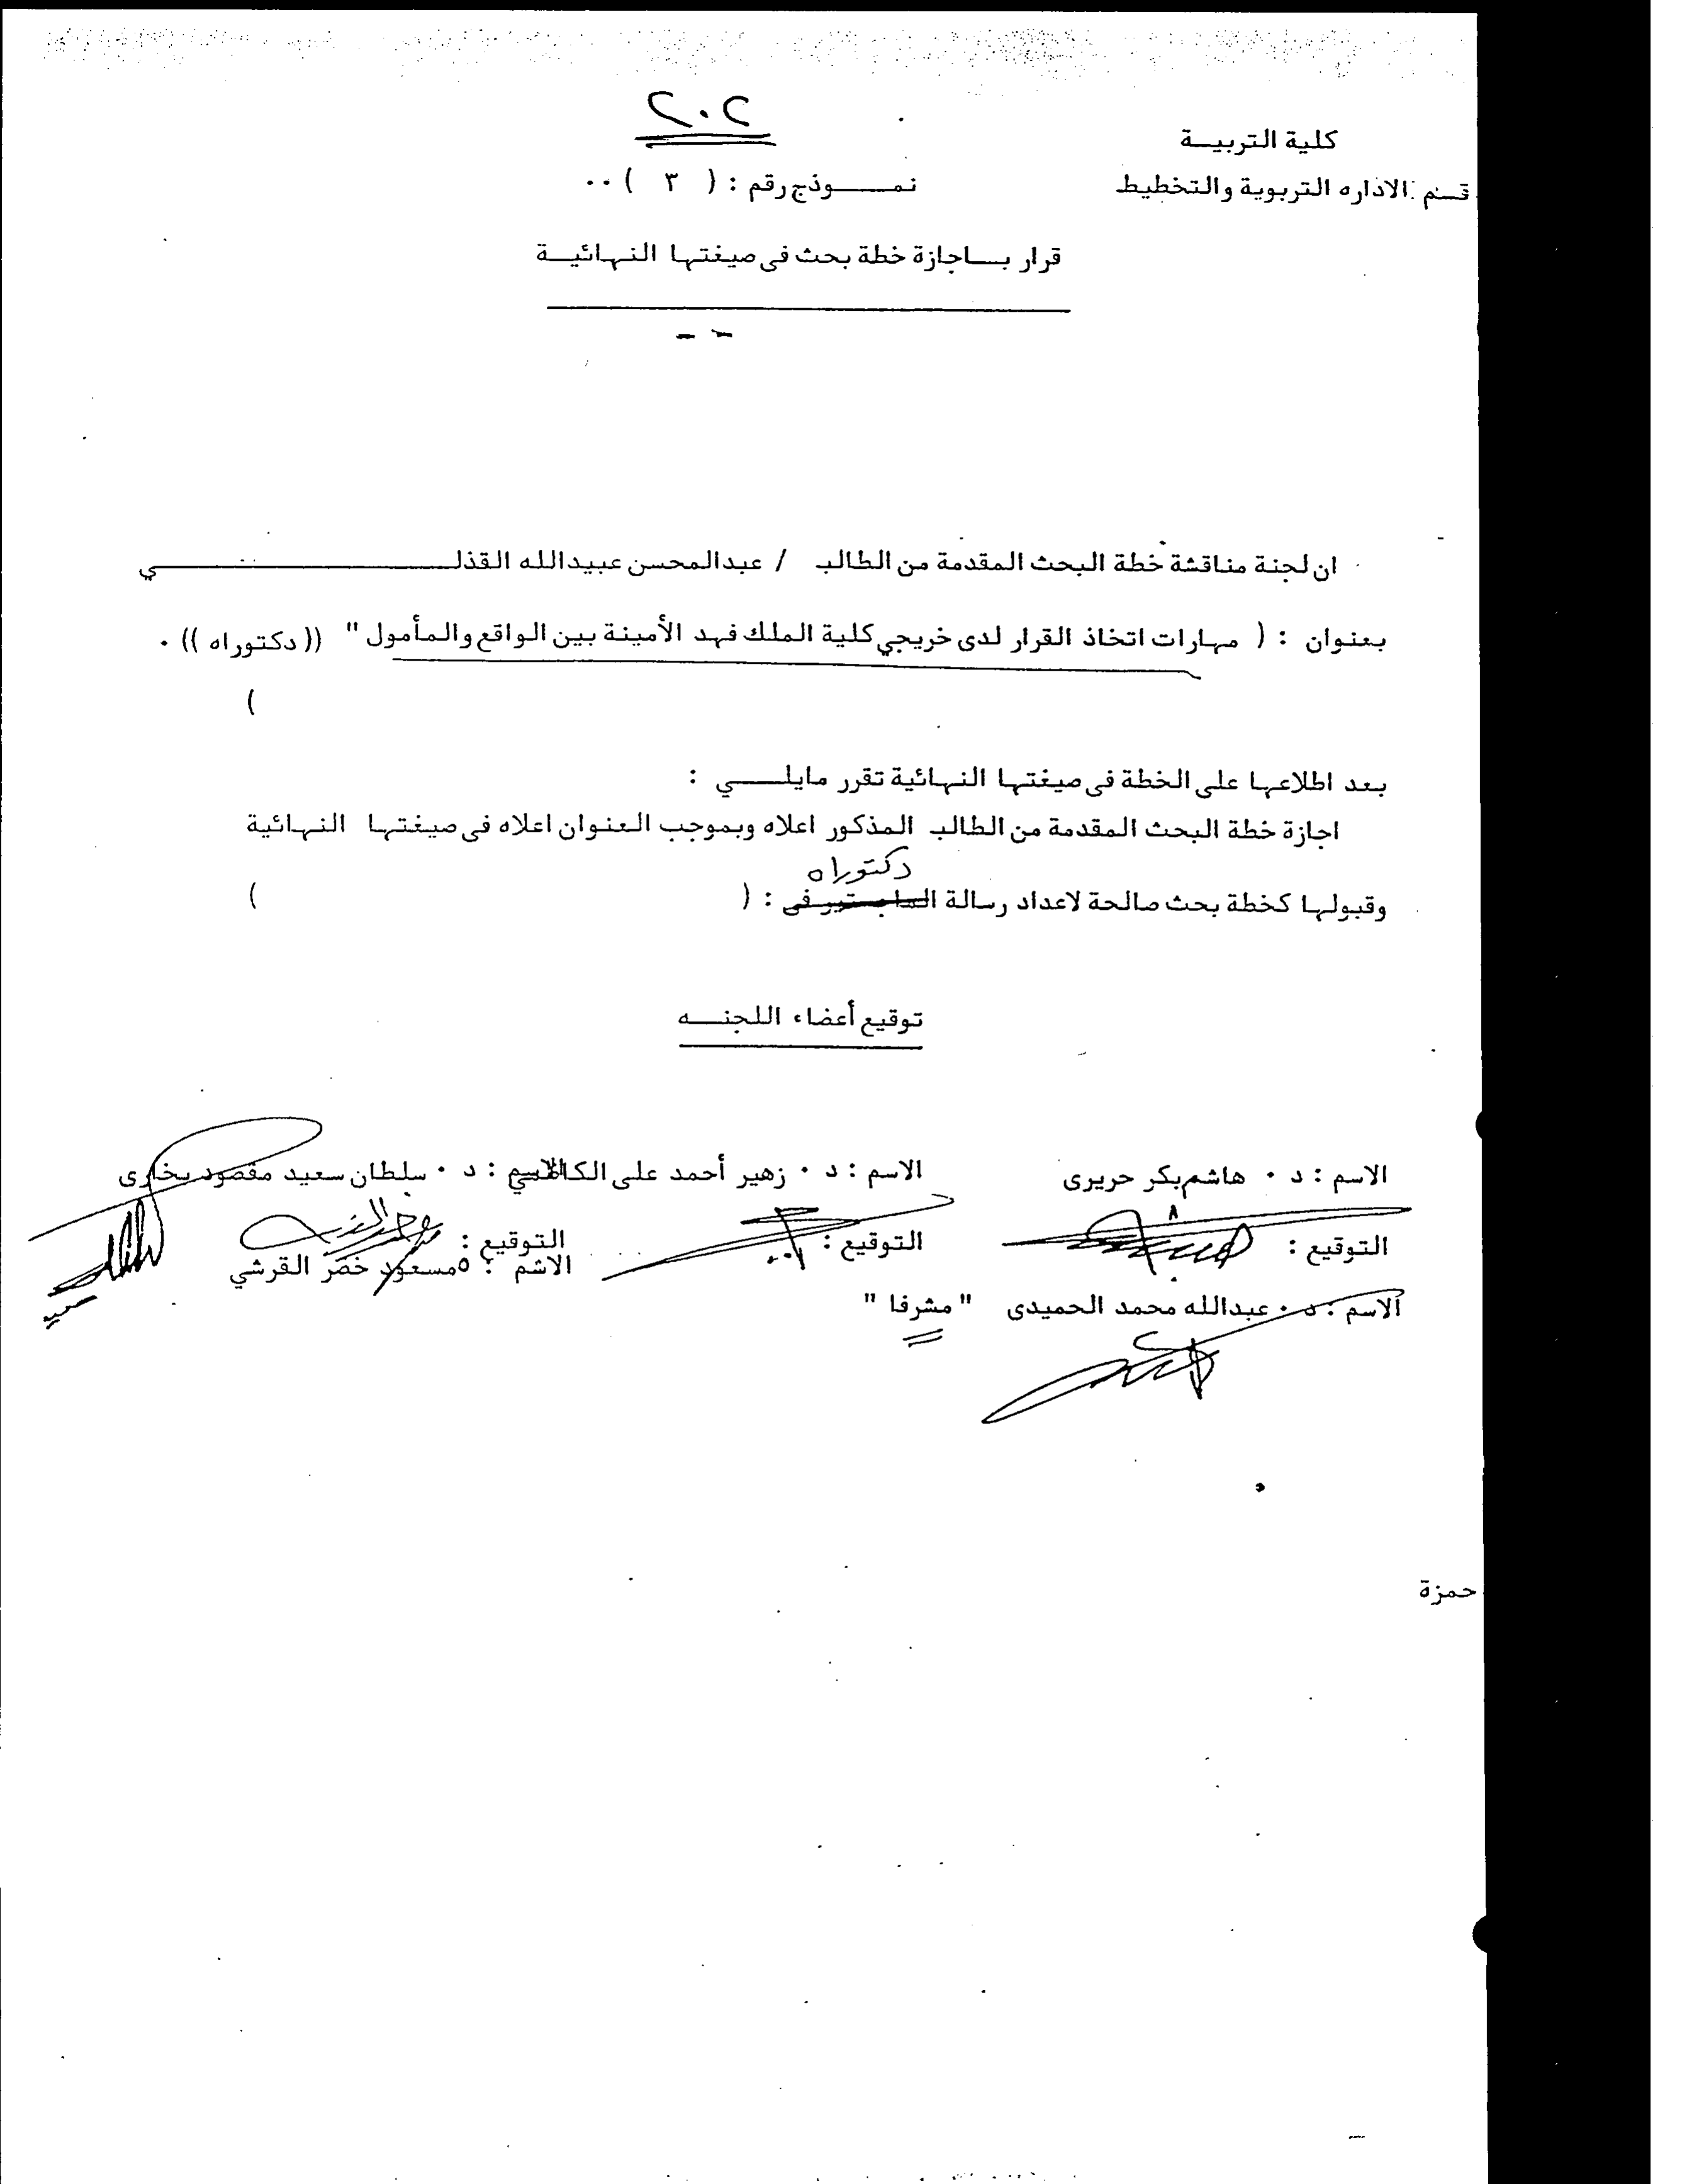 ٢٠٢
كلية التربيــة
نمـــــوذج رقم : ( ٣ ) ٠٠
قسم الاداره التربوية والتخطيط
قرار بـــاجازة خطة بحث فى صيغتها النهائيــة
ان لجنة مناقشة خطة البحث المقدمة من الطالب / عبدالمحسن عبيدالله القذلــــــــــي
بعنوان : ( مهارات اتخاذ القرار لدى خريجي كلية الملك فهد الأمينة بين الواقع والمأمول " (( دكتوراه )) ٠
)
بعد اطلاعها على الخطة فى صيغتها النهائية تقرر مايلـــــي :
اجازة خطة البحث المقدمة من الطالب المذكور اعلاه وبموجب العنوان اعلاه فى صيغتها النهائية
دكتوراه
وقبولها كخطة بحث صالحة لاعداد رسالة الماجستير فى : ( )
توقيع أعضاء اللجنـــه
الاسم : د ٠ هاشم بكر حريرى الاسم : د ٠ زهير أحمد على الكاظمي الاسم : د ٠ سلطان سعيد مقصود بخارى
التوقيع : التوقيع : التوقيع :
الاسم : د مسعود خضر القرشي
الاسم : د ٠ عبدالله محمد الحميدى " مشرفا "
حمزة